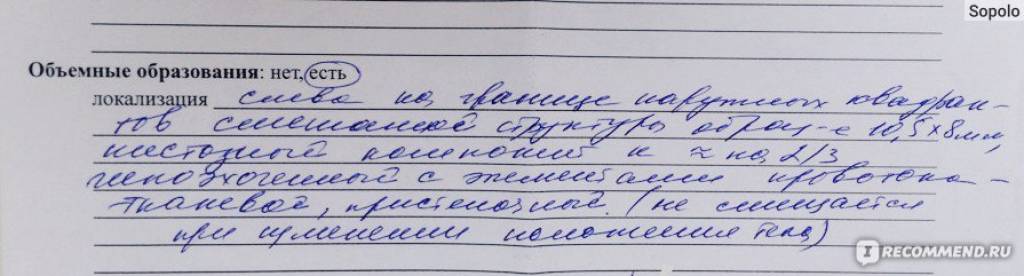 Sopolo
Объемные образования: нет, есть
локализация слева на границе наружных квадран-
тов смешанной структуры образ-е 10,5×8мм,
кистозный компонент к ≈ на 2/3
гипоэхогенный с элементами кровотока -
тканевой, пристеночный. (не смещается
при изменении положения тела)
IRECOMMEND.RU